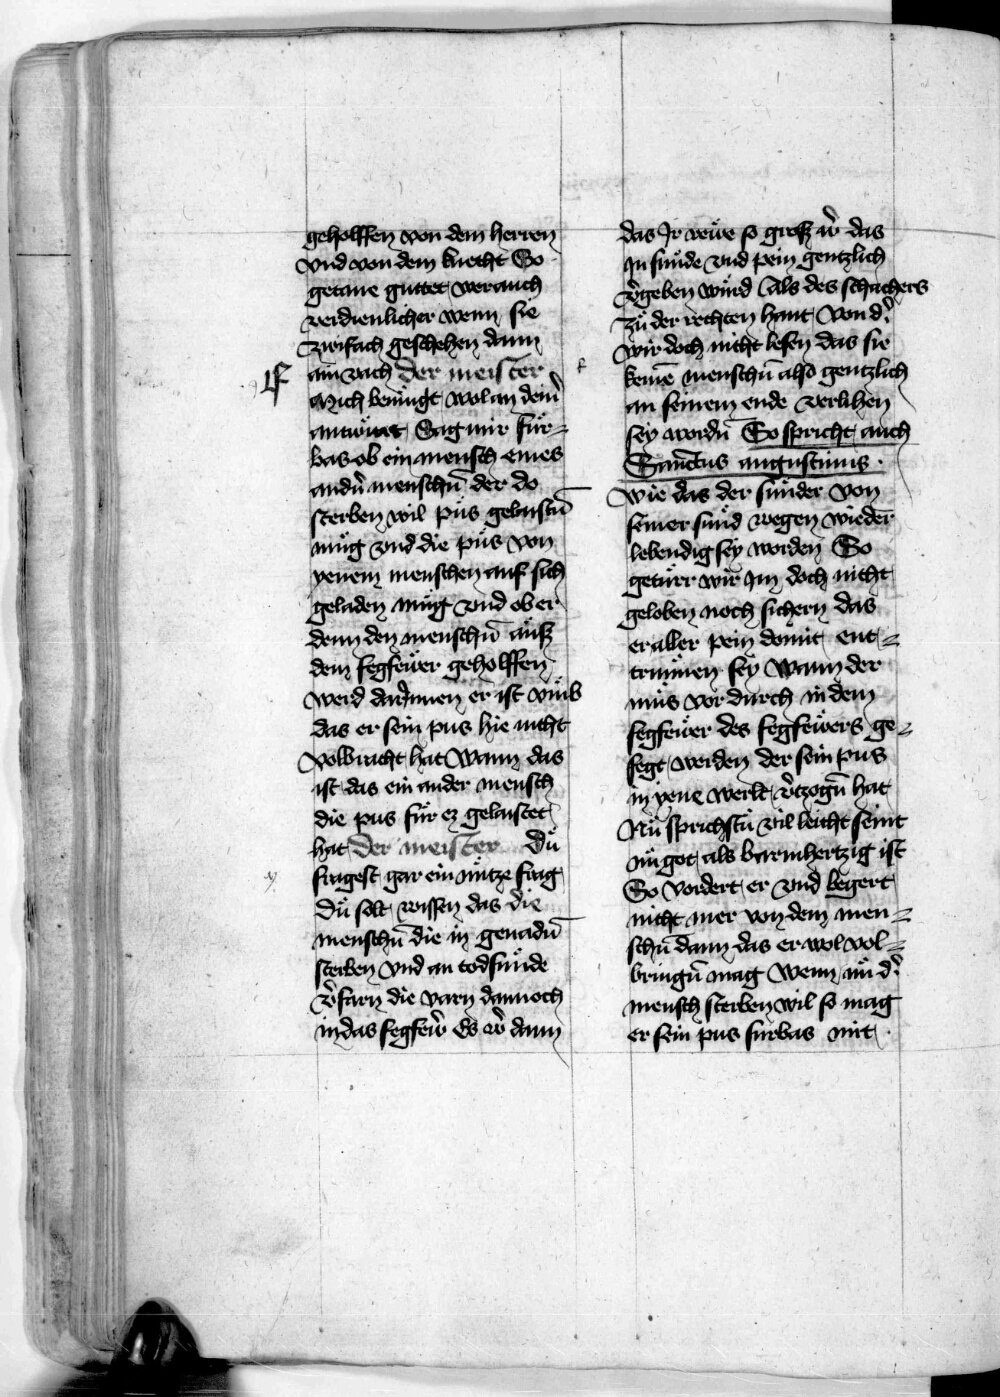 geholffen von dem herren
vnd von dem knecht So
getane guttet wer auch
verdienlicher wenn sie
zwifach geschehen dann
ain vach der meister
Mich benügt wol an deiner
antwürt Sag mir für-
bas ob ein mensch eines
andern menschen der do
sterben wil püs gelaisten
müg vnd die püs von
yenem menschen auf sich
geladen müg vnd ob er
denn den menschen aüsz
dem fegfewer geholffen
werd darinnen er ist vmb
das er sein pus hie nicht
volbracht hat Wann das
ist das ein ander mensch
die pus für ez gelaistet
hat der meister Dü
fragest gar ein nütze frag
Dü solt wissen das die
menschen die in genaden
sterben vnd an todsünde
verfarn die varn dannoch
in das fegfewer Es wer dann
das Ir rewe so grosz wer das
In sünde vnd pein gentzlich
vergeben würd Als des schachers
zü der rechten hant Von der
wir doch nicht lesen das sie
keinem menschen also gentzlich
an seinem ende verlihen
sey worden So spricht auch
Sanctus augustinus .
Wie das der sünder von
seiner sünd wegen wieder
lebendig sey worden So
getürr wir Im doch nicht
geloben noch sichern das
er aller pein domit ent-
trunnen sey Wann der
müs vor durch in dem
fegfewer des fegfewers ge-
fegt werden der sein pus
in yene werlt verzogen hat
Nü sprichstü vil leicht seint
nü got als barmhertzig ist
So vordert er vnd begert
nicht mer von dem men-
schen dann das er wol vol-
bringen mag Wenn nü der
mensch sterben wil so mag
er sein pus fürbas nit